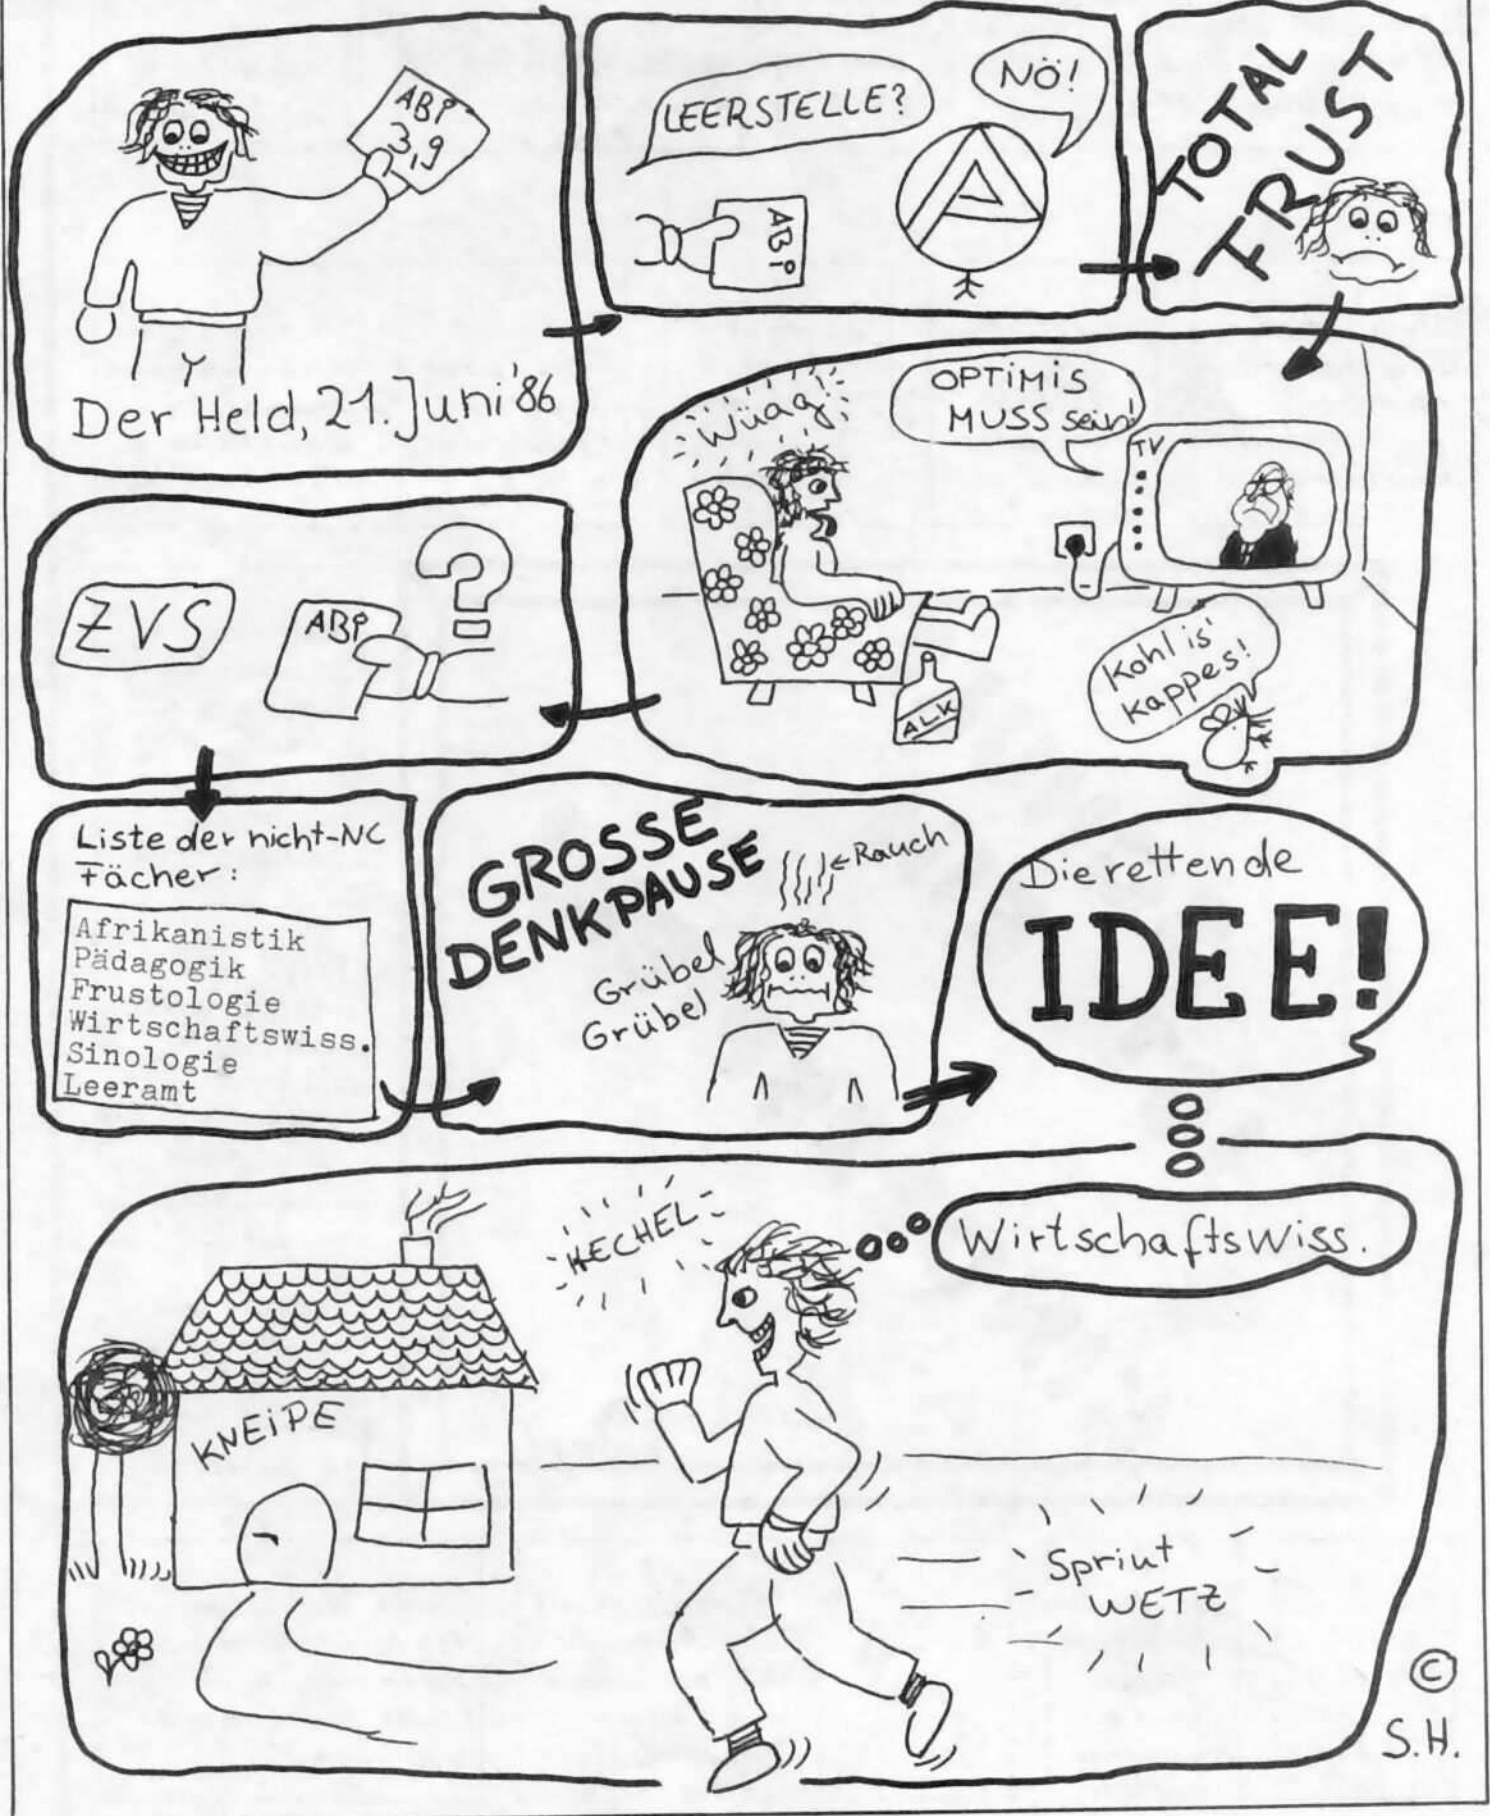 ABi
3,9
Der Held, 21. Juni '86
LEERSTELLE?
NÖ!
ABi
TOTAL
FRUST
Wüag!
OPTiMiS
MUSS sein!
TV
ALK
Kohl is'
kappes!
ZVS
ABi
?
Liste der nicht-NC
Fächer:
Afrikanistik
Pädagogik
Frustologie
Wirtschaftswiss.
Sinologie
Leeramt
GROSSE
DENKPAUSE
←Rauch
Grübel
Grübel
Die rettende
IDEE!
Wirtschaftswiss.
HECHEL
KNEiPE
Sprint
WETZ
©
S.H.